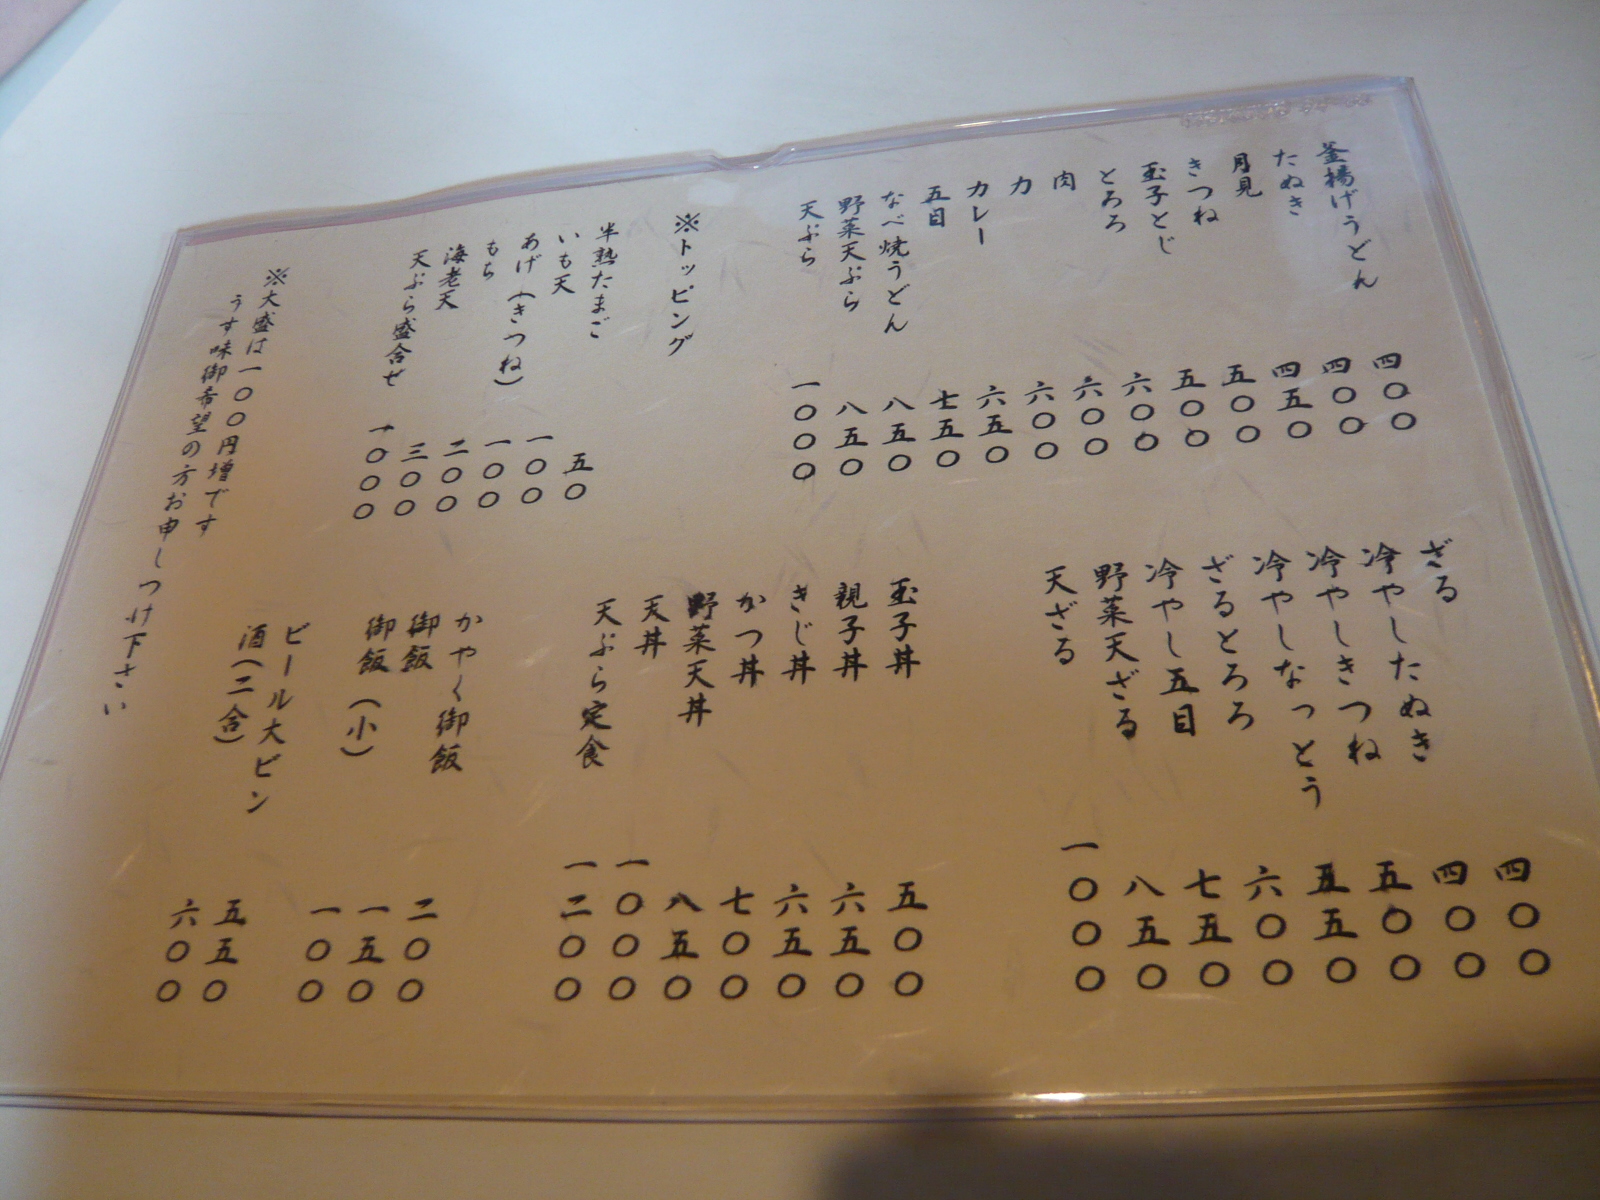 釜揚げうどん 四〇〇
たぬき 四〇〇
月見 四五〇
きつね 五〇〇
玉子とじ 五〇〇
とろろ 六〇〇
肉 六〇〇
力 六〇〇
カレー 六五〇
五目 七五〇
なべ焼うどん 八五〇
野菜天ぷら 八五〇
天ぷら 一〇〇〇
※トッピング
半熟たまご 五〇
いも天 一〇〇
あげ(きつね) 一〇〇
もち 二〇〇
海老天 三〇〇
天ぷら盛合せ 一〇〇〇
※大盛は一〇〇円増です
うす味御希望の方お申しつけ下さい
ざる 四〇〇
冷やしたぬき 四〇〇
冷やしきつね 五〇〇
冷やしなっとう 五五〇
ざるとろろ 六〇〇
冷やし五目 七五〇
野菜天ざる 八五〇
天ざる 一〇〇〇
玉子丼 五〇〇
親子丼 六五〇
きじ丼 六五〇
かつ丼 七〇〇
野菜天丼 八五〇
天丼 一〇〇〇
天ぷら定食 一二〇〇
かやく御飯 二〇〇
御飯 一五〇
御飯(小) 一〇〇
ビール大ビン 五五〇
酒(二合) 六〇〇